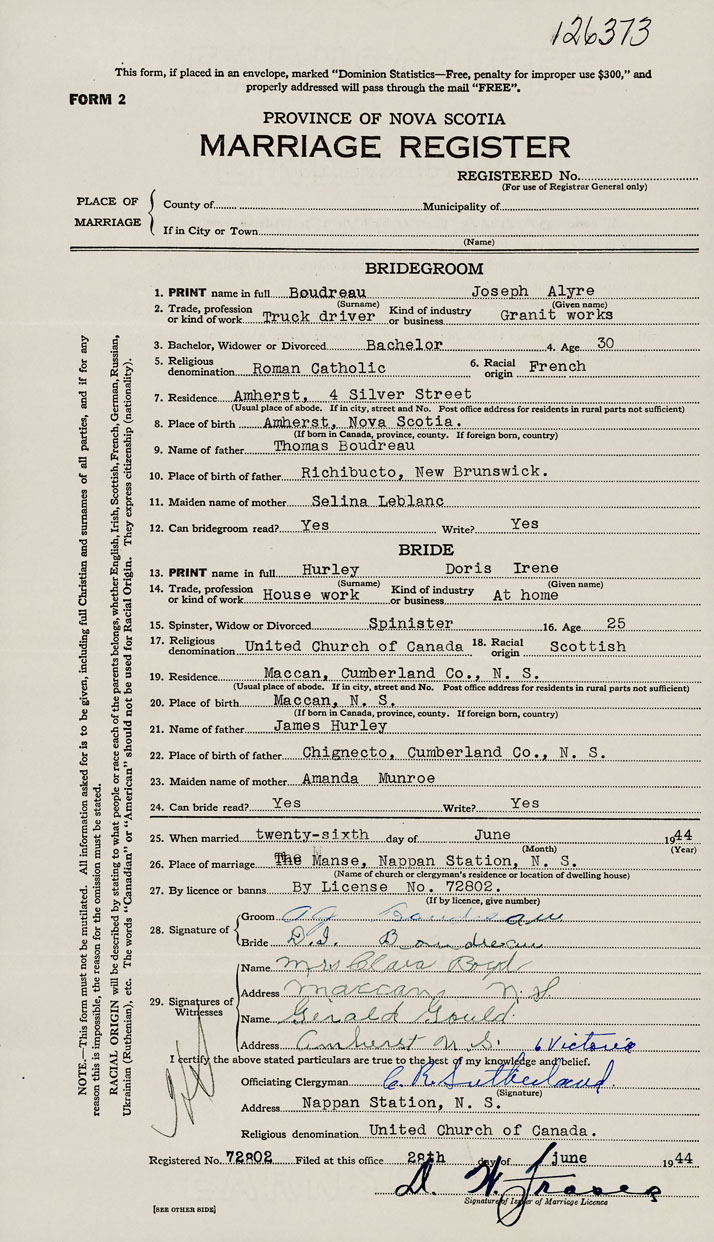 126373
This form, if placed in an envelope, marked "Dominion Statistics—Free, penalty for improper use $300," and
properly addressed will pass through the mail "FREE".
FORM 2
PROVINCE OF NOVA SCOTIA
MARRIAGE REGISTER
REGISTERED No.
(For use of Registrar General only)
PLACE OF MARRIAGE
County of Municipality of
If in City or Town
(Name)
BRIDEGROOM
1. PRINT name in full Boudreau Joseph Alyre
(Surname) (Given name)
2. Trade, profession or kind of work Truck driver Kind of industry or business Granit works
3. Bachelor, Widower or Divorced Bachelor 4. Age 30
5. Religious denomination Roman Catholic 6. Racial origin French
7. Residence Amherst, 4 Silver Street
(Usual place of abode. If in city, street and No. Post office address for residents in rural parts not sufficient)
8. Place of birth Amherst, Nova Scotia.
(If born in Canada, province, county. If foreign born, country)
9. Name of father Thomas Boudreau
10. Place of birth of father Richibucto, New Brunswick.
11. Maiden name of mother Selina Leblanc
12. Can bridegroom read? Yes Write? Yes
BRIDE
13. PRINT name in full Hurley Doris Irene
(Surname) (Given name)
14. Trade, profession or kind of work House work Kind of industry or business At home
15. Spinster, Widow or Divorced Spinister 16. Age 25
17. Religious denomination United Church of Canada 18. Racial origin Scottish
19. Residence Maccan, Cumberland Co., N. S.
(Usual place of abode. If in city, street and No. Post office address for residents in rural parts not sufficient)
20. Place of birth Maccan, N. S.
(If born in Canada, province, county. If foreign born, country)
21. Name of father James Hurley
22. Place of birth of father Chignecto, Cumberland Co., N. S.
23. Maiden name of mother Amanda Munroe
24. Can bride read? Yes Write? Yes
25. When married twenty-sixth day of June 1944
(Month) (Year)
26. Place of marriage The Manse, Nappan Station, N. S.
(Name of church or clergyman's residence or location of dwelling house)
27. By licence or banns By License No. 72802.
(If by licence, give number)
28. Signature of
Groom A J Boudreau
Bride D. I. Boudreau
29. Signatures of Witnesses
Name Mrs Clara Boyd
Address Maccan, N. S.
Name Gerald Gould
Address Amherst N. S. 6 Victoria
I certify the above stated particulars are true to the best of my knowledge and belief.
Officiating Clergyman C. R. Sutherland
(Signature)
Address Nappan Station, N. S.
Religious denomination United Church of Canada.
Registered No. 72802 Filed at this office 28th day of june 1944
D. W. Fraser
Signature of Issuer of Marriage Licence
[SEE OTHER SIDE]
NOTE.—This form must not be mutilated. All information asked for is to be given, including full Christian and surnames of all parties, and if for any
reason this is impossible, the reason for the omission must be stated.
RACIAL ORIGIN will be described by stating to what people or race each of the parents belongs, whether English, Irish, Scottish, French, German, Russian,
Ukrainian (Ruthenian), etc. The words "Canadian" or "American" should not be used for Racial Origin. They express citizenship (nationality).